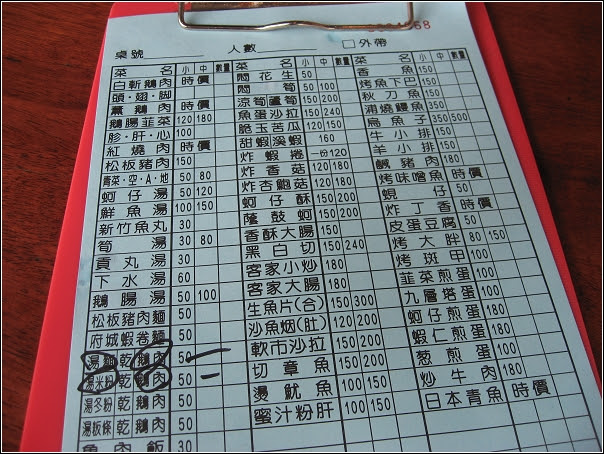 桌號 人數 □外帶
菜名 小 中 數量
白斬鵝肉 時價
頭·翅·腳
薰鵝肉 時價
鵝腸韮菜 120 180
胗·肝·心 100
紅燒肉 時價
松板豬肉 150
青菜·空·A·地 50 80
蚵仔湯 50 120
鮮魚湯 100 150
新竹魚丸 30
筍湯 30 80
貢丸湯 30
下水湯 60
鵝腸湯 50 100
松板豬肉麵 50
府城蝦卷麵 50
湯麵乾鵝肉 50 一
湯米粉乾鵝肉 50 一
湯冬粉乾鵝肉 50
湯板條乾鵝肉 50
魚肉飯 30
菜名 小 中 數量
悶花生 50
悶筍 50 100
涼筍蘆筍 150 200
魚蛋沙拉 150 240
脆玉苦瓜 120 150
甜蝦溪蝦 160
炸蝦捲 一份120
炸香菇 120 180
炸杏鮑菇 120 180
蚵仔酥 150 200
蔭鼓蚵 150 200
香酥大腸 150
黑白切 150 240
客家小炒 180
客家大腸 180
生魚片(合) 150 300
沙魚烟(肚) 120 200
軟市沙拉 150 200
切章魚 150 200
燙魷魚 100 150
蜜汁粉肝 100 150
菜名 小 中 數量
香魚 150
烤魚下巴 150
秋刀魚 150
蒲燒鰻魚 350
烏魚子 350 500
牛小排 150
羊小排 150
鹹豬肉 180
烤味噌魚 時價
蜆仔 50
炸丁香 時價
皮蛋豆腐 50
烤大腁 80 150
烤斑甲 100
韮菜煎蛋 100
九層塔蛋 100
蚵仔煎蛋 100
蝦仁煎蛋 100
葱煎蛋 100
炒牛肉 180
日本青魚 時價